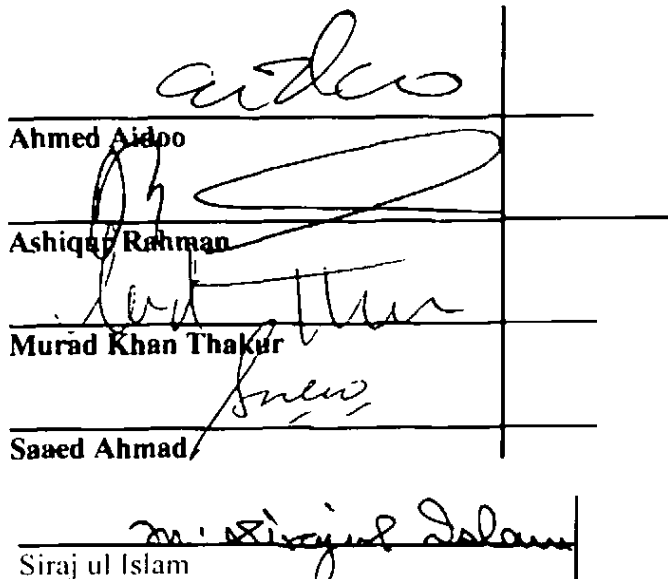 aidoo
Ahmed Aidoo
Ashiqur Rahman
Murad Khan Thakur
Saaed Ahmad
m. Sirajul Islam
Siraj ul Islam